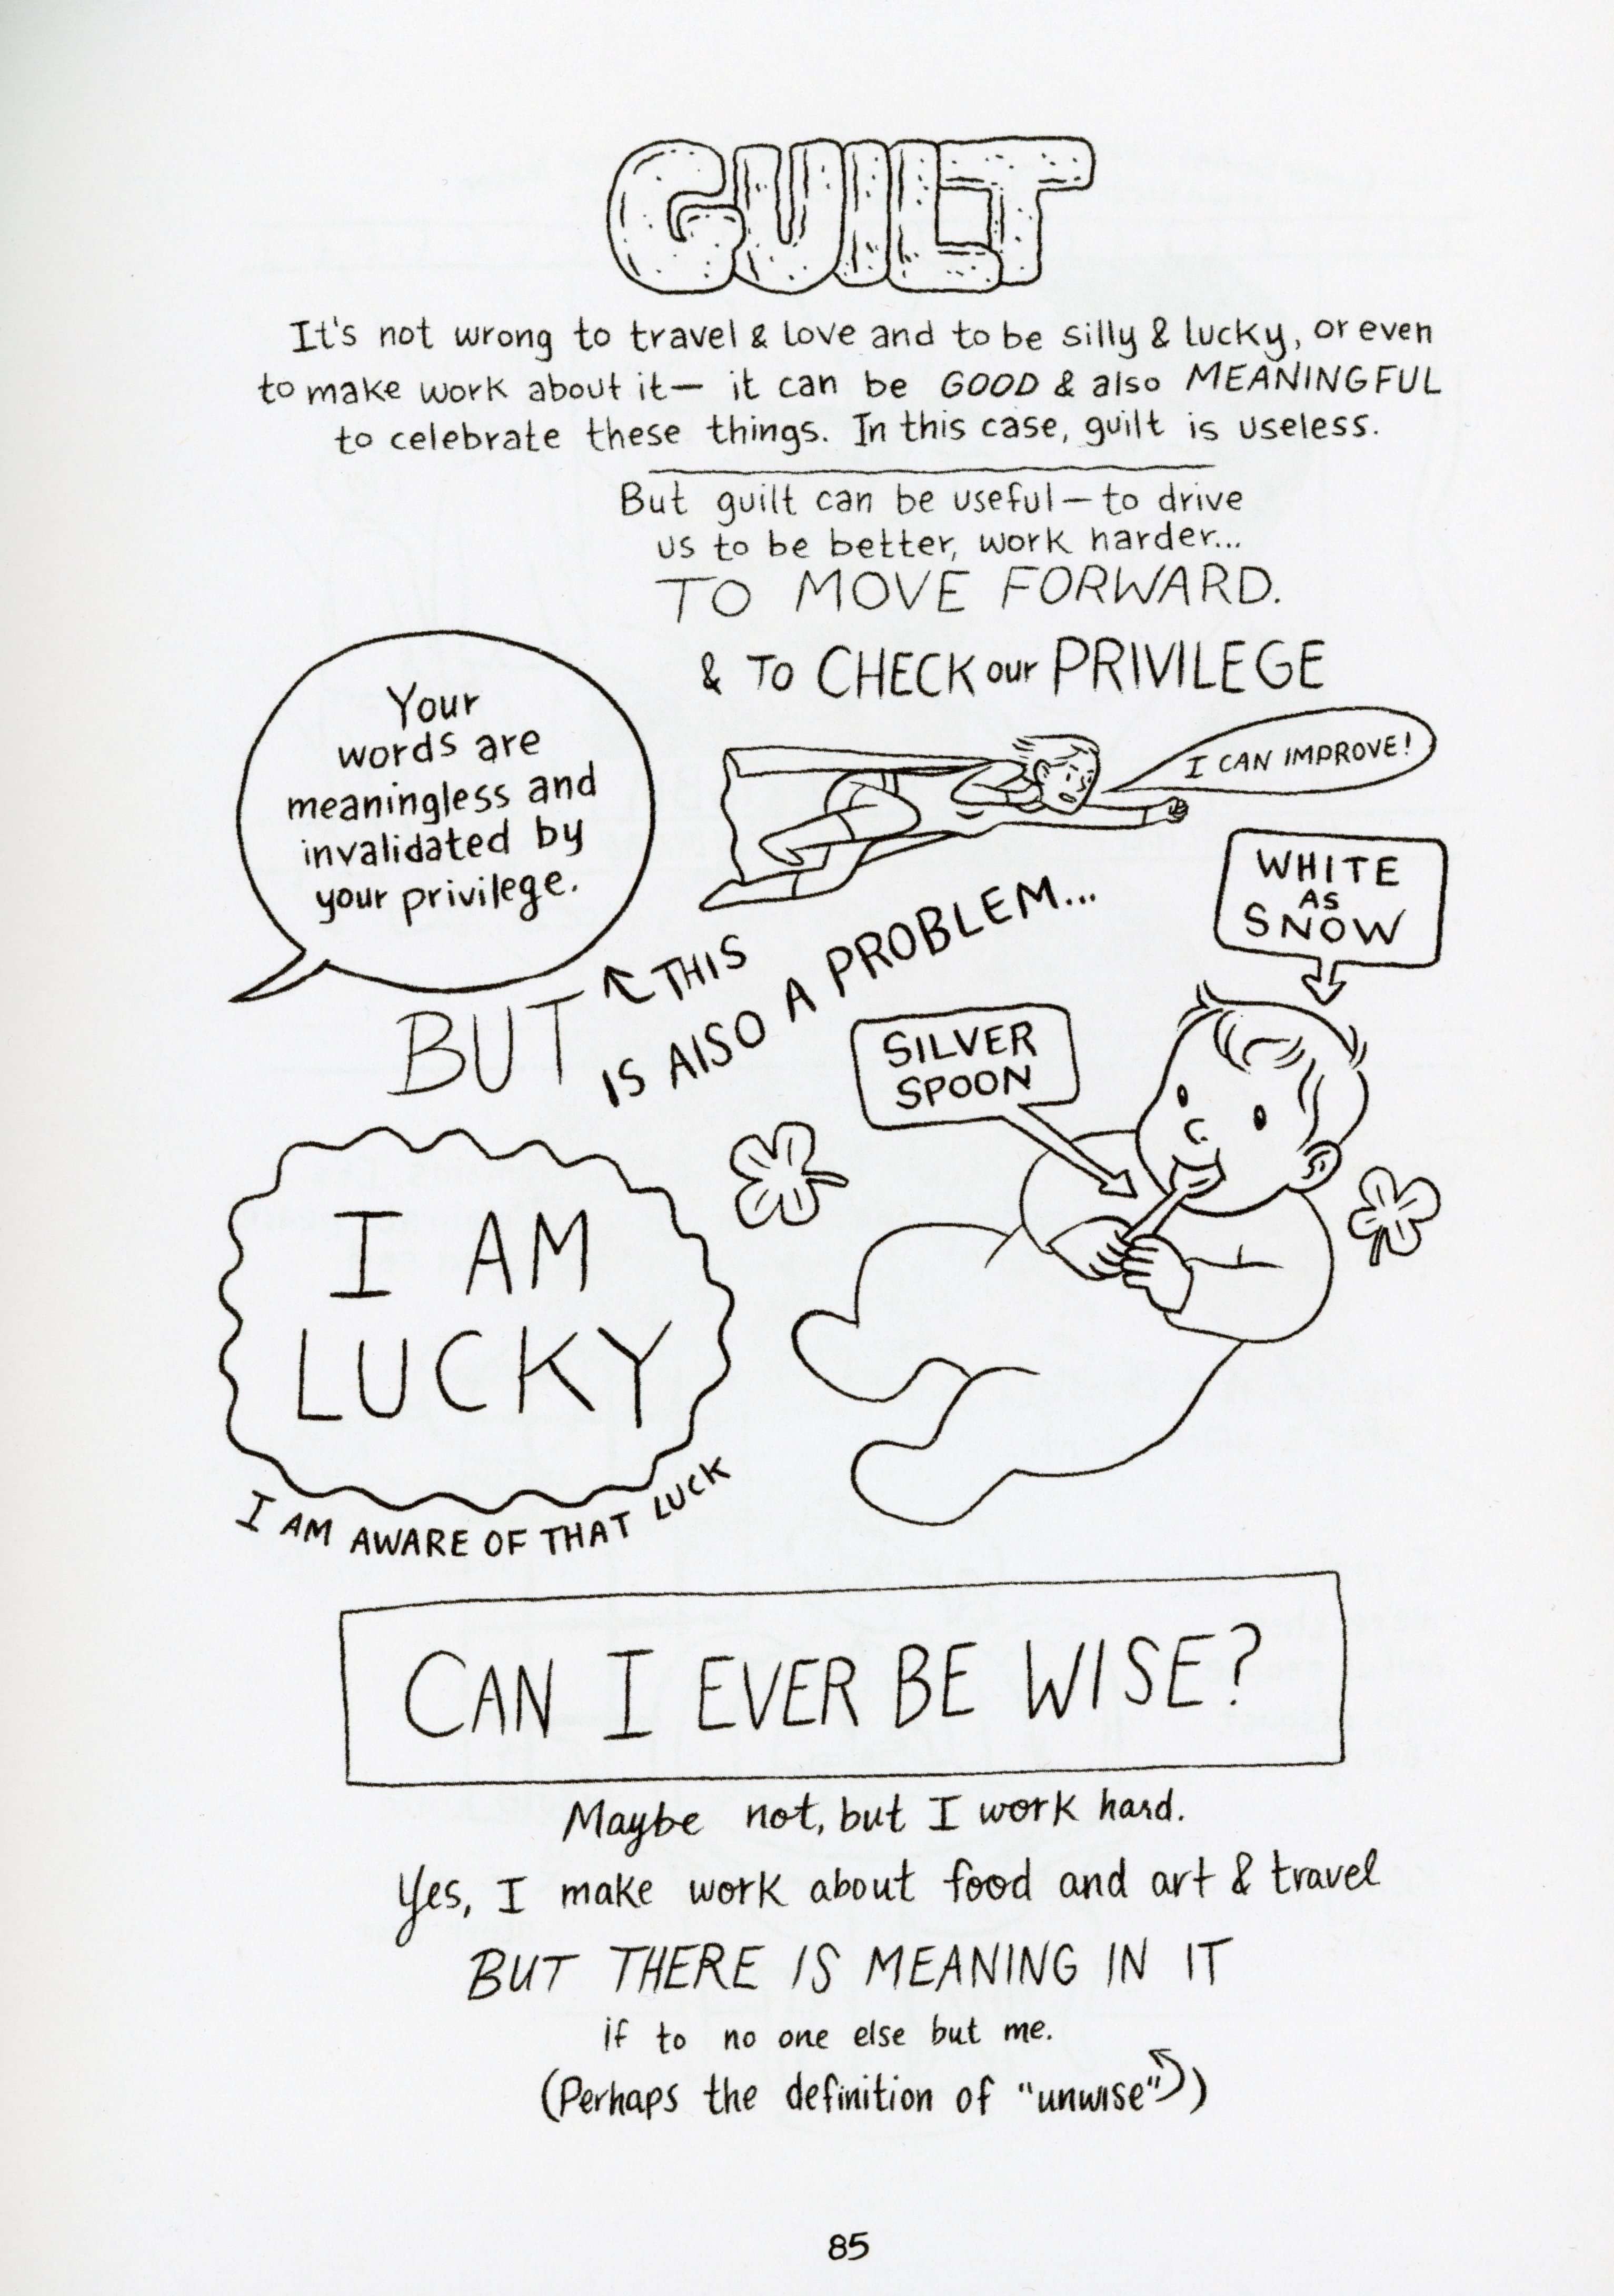 GUILT
It's not wrong to travel & love and to be silly & lucky, or even
to make work about it— it can be GOOD & also MEANINGFUL
to celebrate these things. In this case, guilt is useless.
But guilt can be useful—to drive
us to be better, work harder...
TO MOVE FORWARD.
& TO CHECK our PRIVILEGE
I CAN IMPROVE!
Your
words are
meaningless and
invalidated by
your privilege.
THIS
IS AlSO A PROBLEM...
BUT
WHITE
AS
SNOW
SILVER
SPOON
I AM
LUCKY
I AM AWARE OF THAT LUCK
CAN I EVER BE WISE?
Maybe not, but I work hard.
Yes, I make work about food and art & travel
BUT THERE IS MEANING IN IT
if to no one else but me.
(Perhaps the definition of "unwise")
85